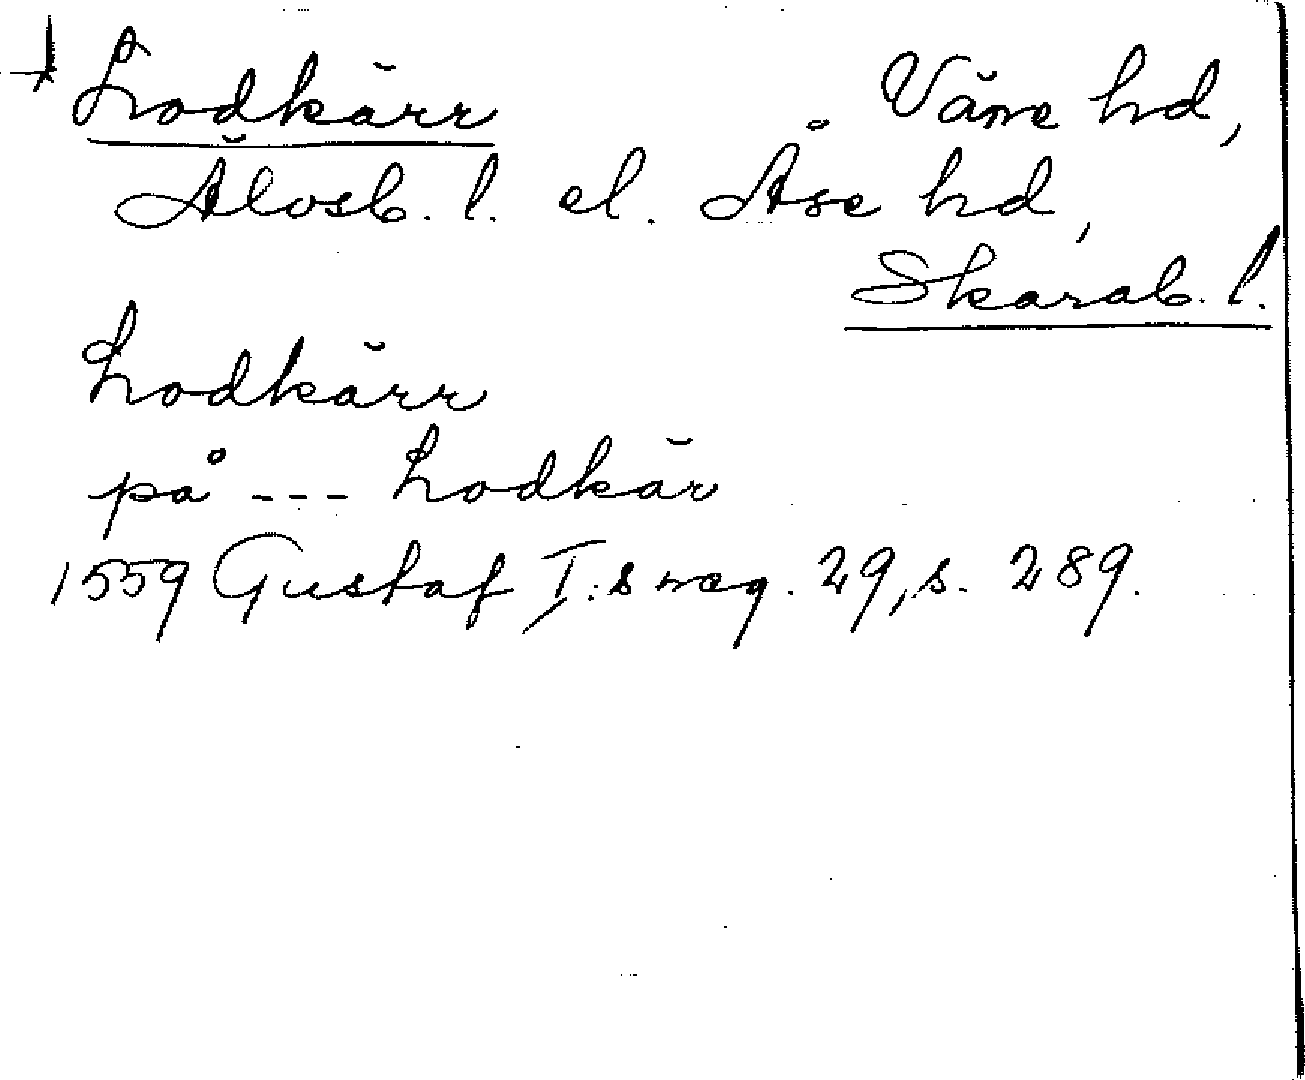 Lodkärr Väne hd,
Älvsb. l. el. Åse hd,
Skarab. l.
Lodkärr
på --- Lodkär
1559 Gustaf I:s reg. 29, s. 289.